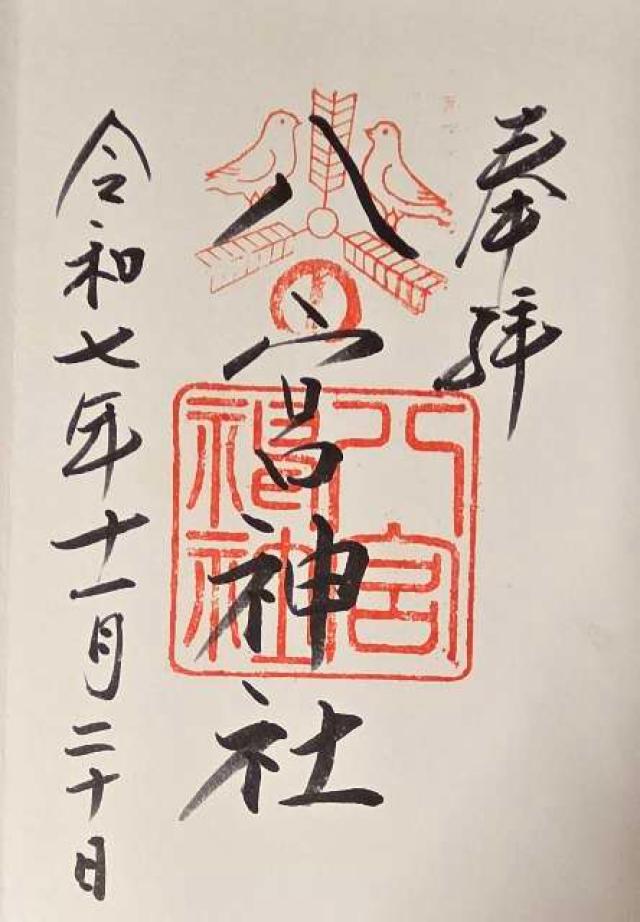 奉拝
八宮神社
八宮神社
令和七年十一月二十日